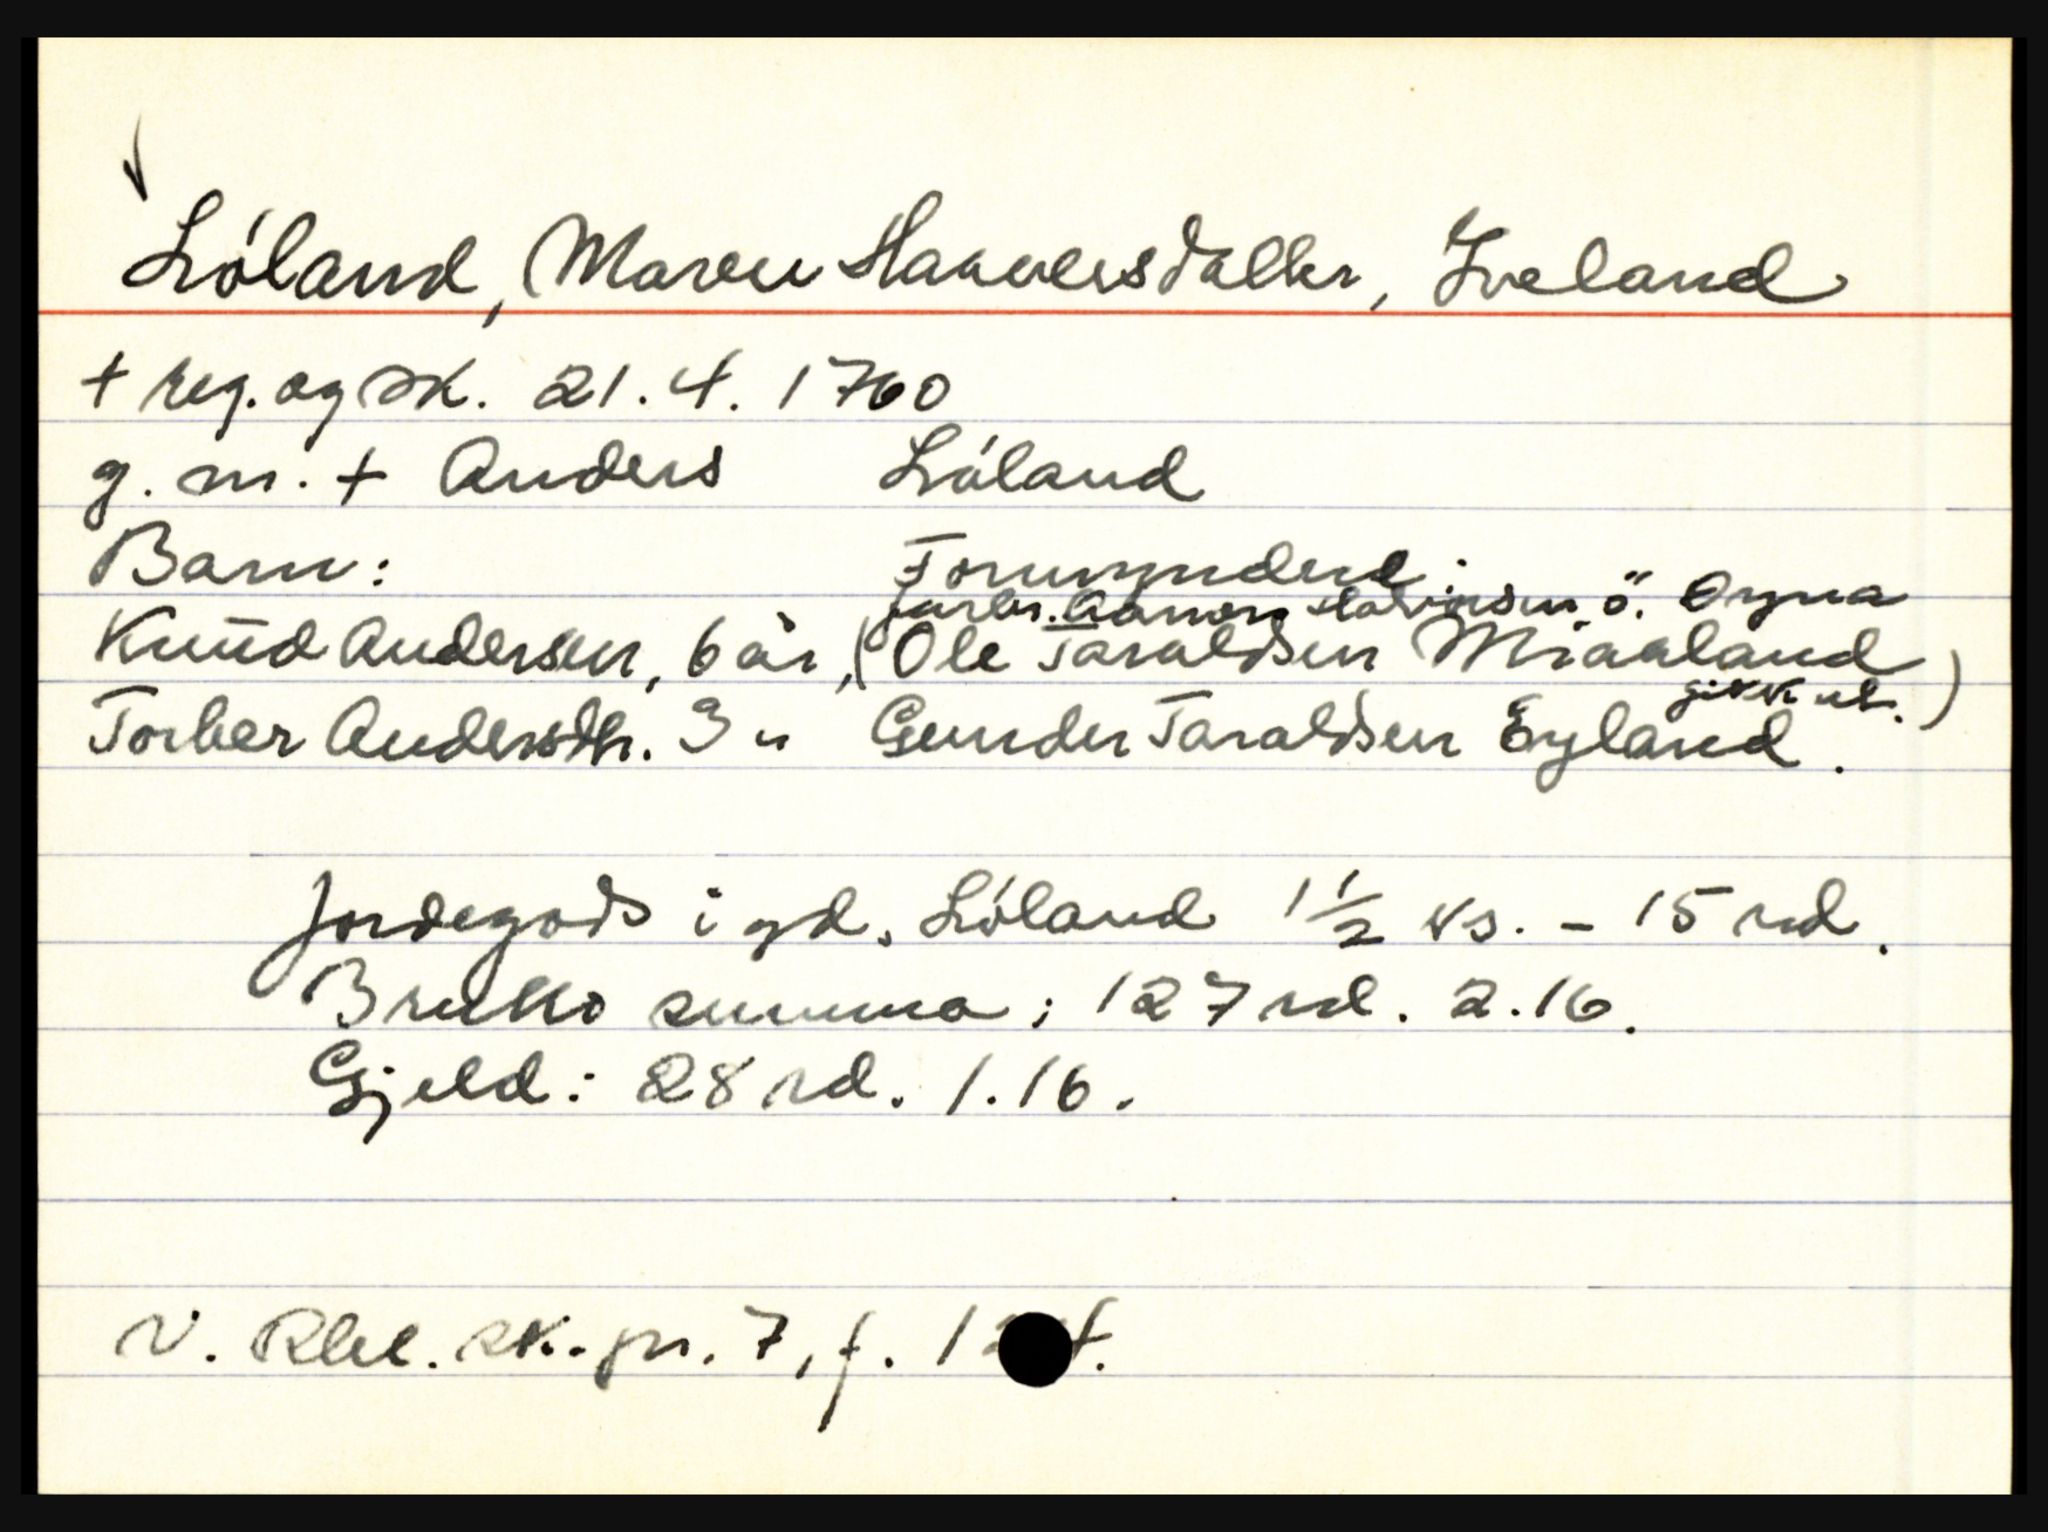 Lóland, Maren Haaversdatter, Iveland
+ reg. og sk. 21. 4. 1760
g. m. + Anders Lóland
Barn: Formyndere:
farbr. Aanon ö. Øyna
Knud Andersen, 6 år, (Ole Taraldsen Miaaland
gikk ut.)
Torber Andersdtr. 3 " Gunder Taraldsen Eyland.
Jordegods i gd. Lóland 1 1/2 ks. - 15 rd.
Brutto summa: 127 rd. 2.16.
Gjeld: 28 rd. 1.16.
V. Rbl. sk. pr. 7, f.